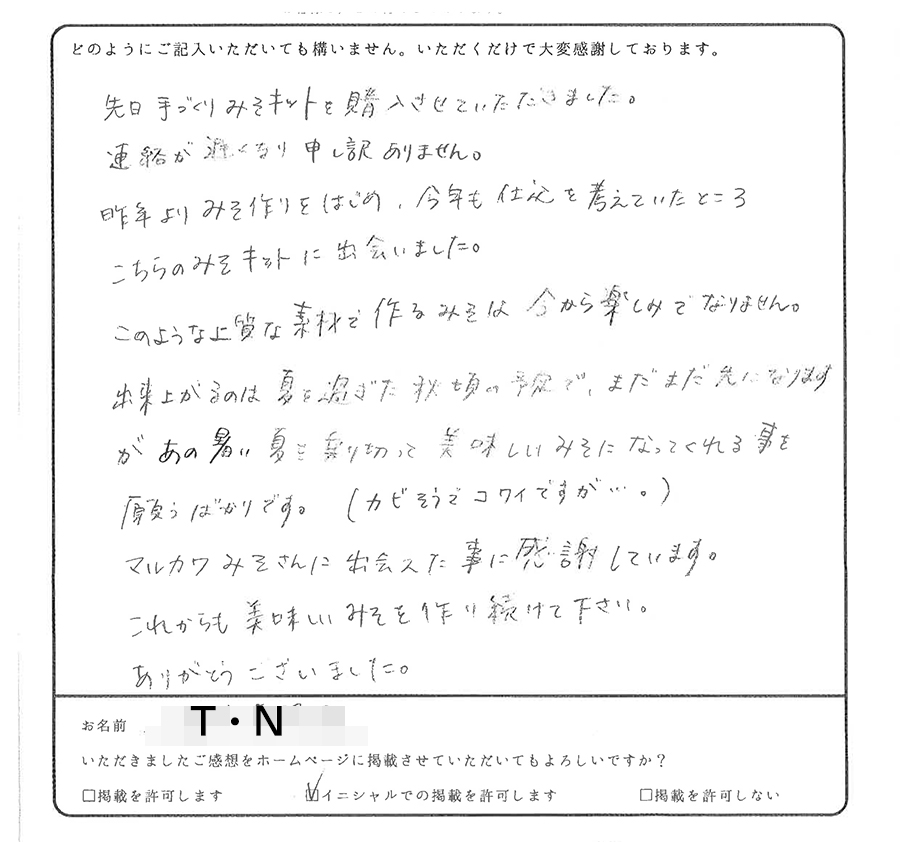 どのようにご記入いただいても構いません。いただくだけで大変感謝しております。
先日 手づくりみそキットを購入させていただきました。
連絡が遅くなり申し訳ありません。
昨年よりみそ作りをはじめ、今年も仕込を考えていたところ
こちらのみそキットに出会いました。
このような上質な素材で作るみそは今から楽しみでなりません。
出来上がるのは夏を過ぎた秋頃の予定で、まだまだ先になります
があの暑い夏を乗り切って美味しいみそになってくれる事を
願うばかりです。(カビそうでコワイですが…。)
マルカワみそさんに出会えた事に感謝しています。
これからも美味しいみそを作り続けて下さい。
ありがとうございました。
お名前 T・N
いただきましたご感想をホームページに掲載させていただいてもよろしいですか?
□掲載を許可します ☑イニシャルでの掲載を許可します □掲載を許可しない